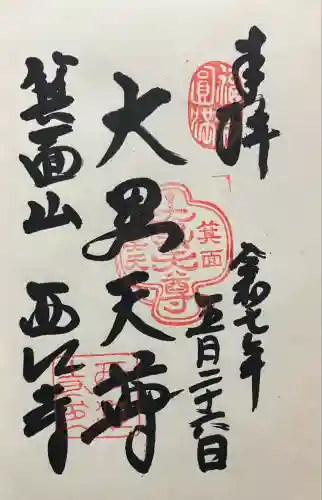 奉拝
令和七年
五月二十六日
大黒天尊
箕面山 西江寺
圓満
箕面
天尊